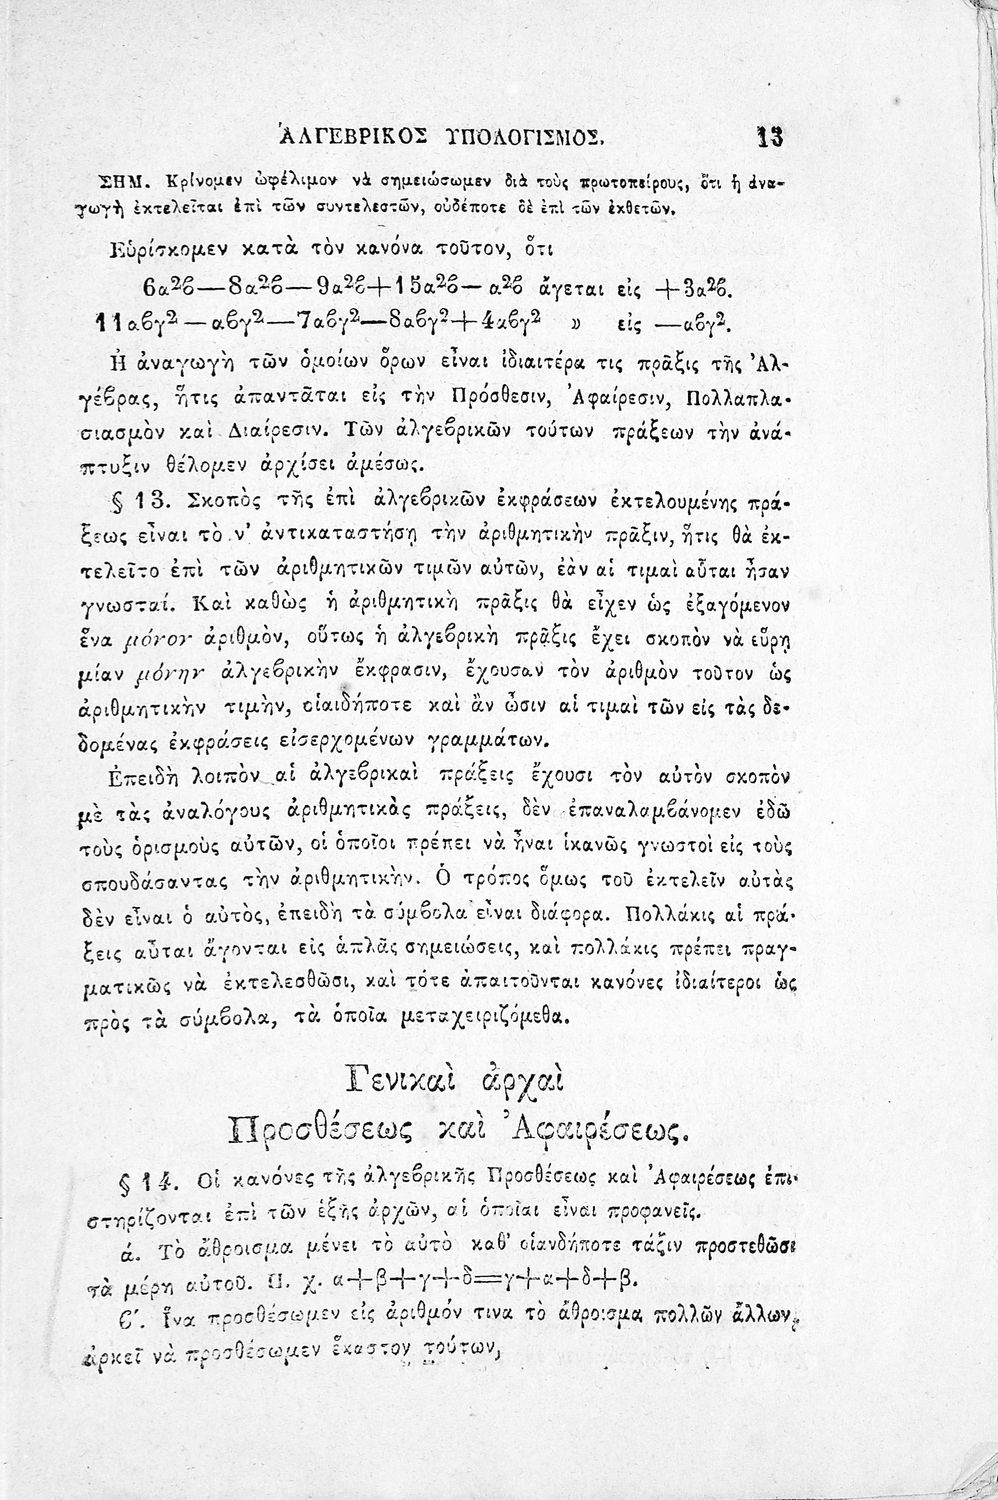 ἈΛΓΕΒΡΙΚΟΣ ΥΠΟΛΟΓΙΣΜΟΣ. 13
ΣΗΜ. Κρίνομεν ὠφέλιμον νὰ σημειώσωμεν διὰ τοὺς πρωτοπείρους, ὅτι ἡ ἀνα-
γωγὴ ἐκτελεῖται ἐπὶ τῶν συντελεστῶν, οὐδέποτε δὲ ἐπὶ τῶν ἐκθετῶν.
Εὑρίσκομεν κατὰ τὸν κανόνα τοῦτον, ὅτι
6α²ϐ—8α²ϐ—9α²ϐ+15α²ϐ—α²ϐ ἄγεται εἰς +3α²ϐ.
11αϐγ²—αϐγ²—7αϐγ²—8αϐγ²+4αϐγ² » εἰς —αϐγ².
Ἡ ἀναγωγὴ τῶν ὁμοίων ὅρων εἶναι ἰδιαιτέρα τις πρᾶξις τῆς Ἀλ-
γέϐρας, ἥτις ἀπαντᾶται εἰς τὴν Πρόσθεσιν, Ἀφαίρεσιν, Πολλαπλα-
σιασμὸν καὶ Διαίρεσιν. Τῶν ἀλγεϐρικῶν τούτων πράξεων τὴν ἀνά-
πτυξιν θέλομεν ἀρχίσει ἀμέσως.
§ 13. Σκοπὸς τῆς ἐπὶ ἀλγεϐρικῶν ἐκφράσεων ἐκτελουμένης πρά-
ξεως εἶναι τὸ ν' ἀντικαταστήσῃ τὴν ἀριθμητικὴν πρᾶξιν, ἥτις θὰ ἐκ-
τελεῖτο ἐπὶ τῶν ἀριθμητικῶν τιμῶν αὐτῶν, ἐὰν αἱ τιμαὶ αὗται ἦσαν
γνωσταί. Καὶ καθὼς ἡ ἀριθμητικὴ πρᾶξις θὰ εἶχεν ὡς ἐξαγόμενον
ἕνα μόνον ἀριθμὸν, οὕτως ἡ ἀλγεϐρικὴ πρᾶξις ἔχει σκοπὸν νὰ εὕρῃ
μίαν μόνην ἀλγεϐρικὴν ἔκφρασιν, ἔχουσαν τὸν ἀριθμὸν τοῦτον ὡς
ἀριθμητικὴν τιμὴν, οἱαιδήποτε καὶ ἂν ὦσιν αἱ τιμαὶ τῶν εἰς τὰς δε-
δομένας ἐκφράσεις εἰσερχομένων γραμμάτων.
Ἐπειδὴ λοιπὸν αἱ ἀλγεϐρικαὶ πράξεις ἔχουσι τὸν αὐτὸν σκοπὸν
μὲ τὰς ἀναλόγους ἀριθμητικὰς πράξεις, δὲν ἐπαναλαμϐάνομεν ἐδῶ
τοὺς ὁρισμοὺς αὐτῶν, οἱ ὁποῖοι πρέπει νὰ ἦναι ἱκανῶς γνωστοὶ εἰς τοὺς
σπουδάσαντας τὴν ἀριθμητικὴν. Ὁ τρόπος ὅμως τοῦ ἐκτελεῖν αὐτὰς
δὲν εἶναι ὁ αὐτὸς, ἐπειδὴ τὰ σύμϐολα εἶναι διάφορα. Πολλάκις αἱ πρά-
ξεις αὗται ἄγονται εἰς ἁπλᾶς σημειώσεις, καὶ πολλάκις πρέπει πραγ-
ματικῶς νὰ ἐκτελεσθῶσι, καὶ τότε ἀπαιτοῦνται κανόνες ἰδιαίτεροι ὡς
πρὸς τὰ σύμϐολα, τὰ ὁποῖα μεταχειριζόμεθα.
Γενικαὶ ἀρχαὶ
Προσθέσεως καὶ Ἀφαιρέσεως.
§ 14. Οἱ κανόνες τῆς ἀλγεϐρικῆς Προσθέσεως καὶ Ἀφαιρέσεως ἐπι-
στηρίζονται ἐπὶ τῶν ἑξῆς ἀρχῶν, αἱ ὁποῖαι εἶναι προφανεῖς.
ά. Τὸ ἄθροισμα μένει τὸ αὐτὸ καθ' οἱανδήποτε τάξιν προστεθῶσι
τὰ μέρη αὐτοῦ. Π. χ. α+β+γ+δ=γ+α+δ+β.
ϐ'. Ἵνα προσθέσωμεν εἰς ἀριθμόν τινα τὸ ἄθροισμα πολλῶν ἄλλων,
ἀρκεῖ νὰ προσθέσωμεν ἕκαστον τούτων,